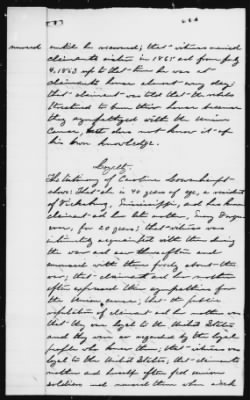 married until he married; that witness married
claimants sister in 1865 and from July
4, 1863 up to that time he was at
claimants house almost every day;
that claimant was told that the rebels
threatened to burn their house because
they sympathized with the Union
Cause, but does not know it of
his own knowledge.
Loyalty.
The testimony of Caroline
shows: That she is 40 years of age, a resident
of Vicksburg, Mississippi, and has known
claimant and her late mother, Mary
, for 20 years; that witness was
intimately acquainted with them during
the war and saw them often and
conversed with them freely about the
war; that claimant and her mother
often expressed their sympathies for
the Union cause; that the public
reputation of claimant and her mother was
that they were loyal to the United States
and they were so regarded by the loyal
people who knew them; that witness was
loyal to the United States; that claimants
mother and herself often fed union
soldiers and nursed them when sick